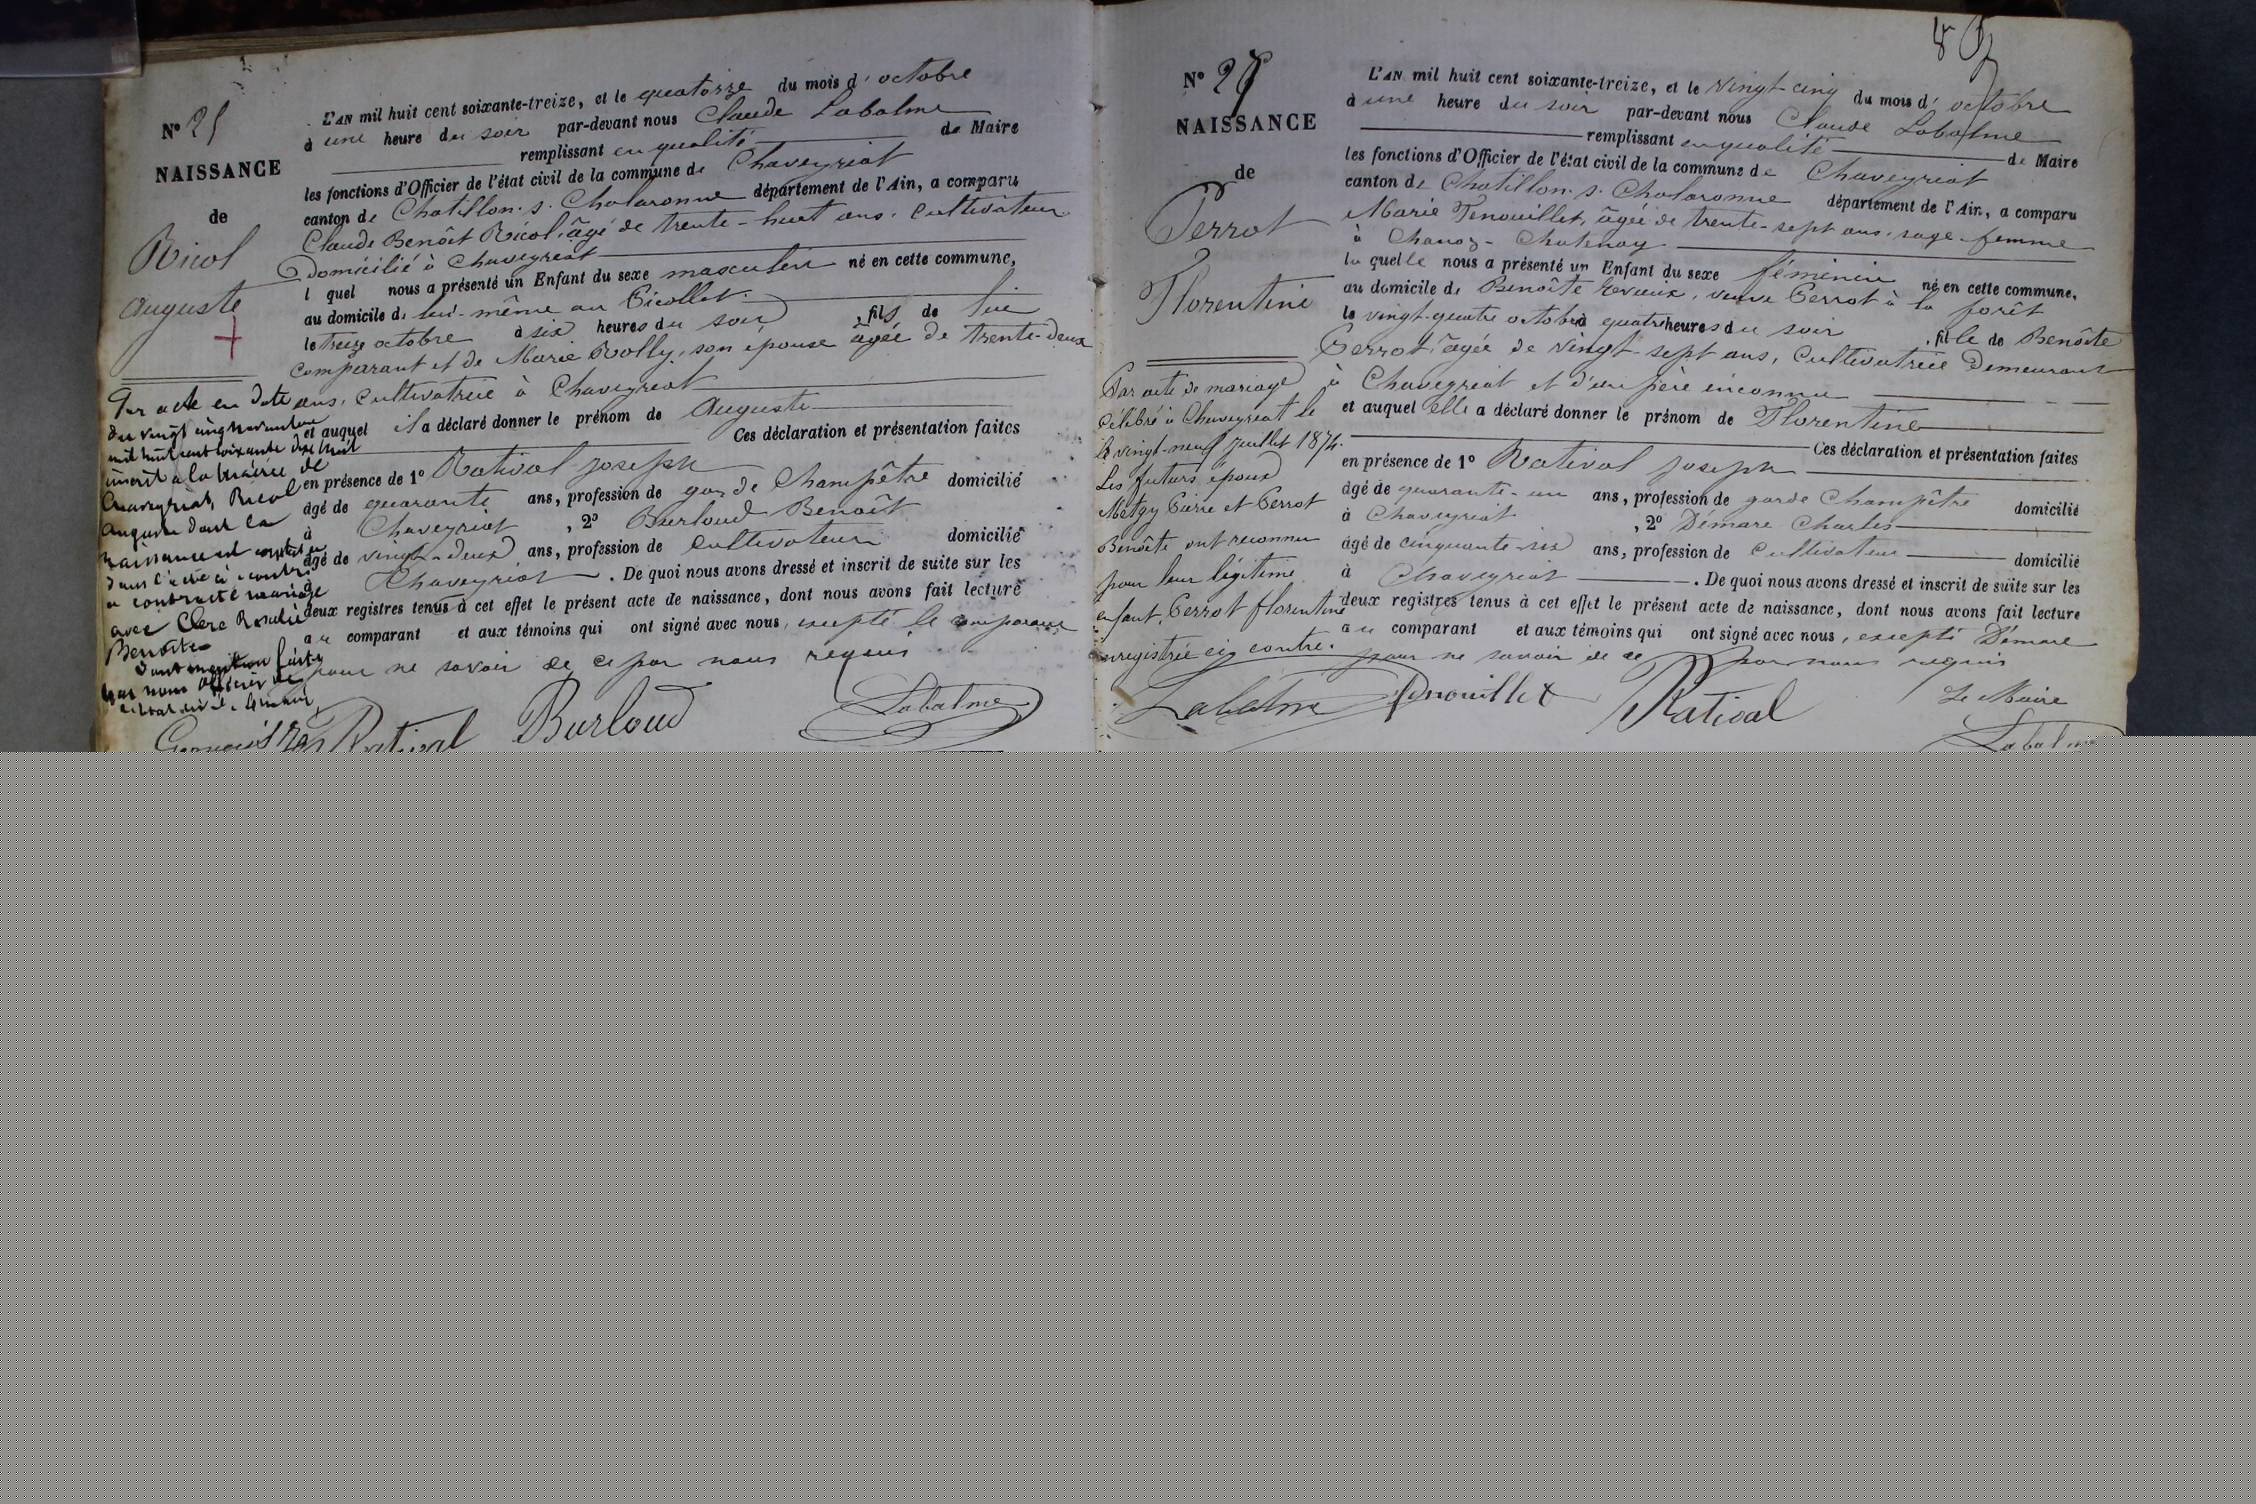 N° 25
NAISSANCE
de
Ricol
Auguste
L'AN mil huit cent soixante-treize, et le quatorze du mois d'octobre
à une heure du soir par-devant nous Claude Labalme
remplissant en qualité de Maire
les fonctions d'Officier de l'état civil de la commune de Chaveyriat
canton de Chatillon-s-Chalaronne département de l'Ain, a comparu
Claude Benoît Ricol, âgé de trente-huit ans, cultivateur
Domicilié à Chaveyriat
lequel nous a présenté un Enfant du sexe masculin né en cette commune,
au domicile de lui-même au Picollet
le treize octobre à six heures du soir, fils de lui
comparant et de Marie Rolly, son épouse âgée de trente-deux
ans, cultivatrice à Chaveyriat
et auquel il a déclaré donner le prénom de Auguste
Ces déclaration et présentation faites
en présence de 1° Rativol Joseph
âgé de quarante ans, profession de garde Champêtre domicilié
à Chaveyriat, 2° Burloud Benoît
âgé de vingt-deux ans, profession de cultivateur domicilié
à Chaveyriat. De quoi nous avons dressé et inscrit de suite sur les
deux registres tenus à cet effet le présent acte de naissance, dont nous avons fait lecture
au comparant et aux témoins qui ont signé avec nous, excepté le comparant
pour ne savoir de ce par nous requis
Par acte en date
du vingt cinq novembre
mil huit cent soixante dix huit
inscrit à la Mairie de
Chaveyriat, Ricol
Auguste dont la
naissance est constatée
dans l'acte ci-contre
a contracté mariage
avec Clerc Rosalie
Benoîte
Dont mention faite
par nous Officier de
Rativol Burloud Labalme
N° 26
NAISSANCE
de
Perrot
Florentine
L'AN mil huit cent soixante-treize, et le vingt-cinq du mois d'octobre
à une heure du soir par-devant nous Claude Labalme
remplissant en qualité de Maire
les fonctions d'Officier de l'état civil de la commune de Chaveyriat
canton de Chatillon-s-Chalaronne département de l'Ain, a comparu
Marie Tenouillet, âgée de trente-sept ans, sage-femme
à Chanoz-Chatenay
laquelle nous a présenté un Enfant du sexe féminin né en cette commune,
au domicile de Benoîte veuve Perrot à la forêt
le vingt-quatre octobre à quatre heures du soir, fille de Benoîte
Perrot, âgée de vingt-sept ans, cultivatrice demeurant
à Chaveyriat et d'un père inconnu
et auquel elle a déclaré donner le prénom de Florentine
Ces déclaration et présentation faites
en présence de 1° Rativol Joseph
âgé de quarante-un ans, profession de garde Champêtre domicilié
à Chaveyriat, 2° Démare Charles
âgé de cinquante-six ans, profession de cultivateur domicilié
à Chaveyriat. De quoi nous avons dressé et inscrit de suite sur les
deux registres tenus à cet effet le présent acte de naissance, dont nous avons fait lecture
au comparant et aux témoins qui ont signé avec nous, excepté Démare
pour ne savoir de ce par nous requis
Par acte de mariage
célébré à Chaveyriat le
le vingt-neuf juillet 1874.
Les futurs époux
Metgy Pierre et Perrot
Benoîte ont reconnu
pour leur légitime
enfant, Perrot florentine
enregistrée ci-contre.
Labalme Tenouillet Rativol Le Maire
Labalme